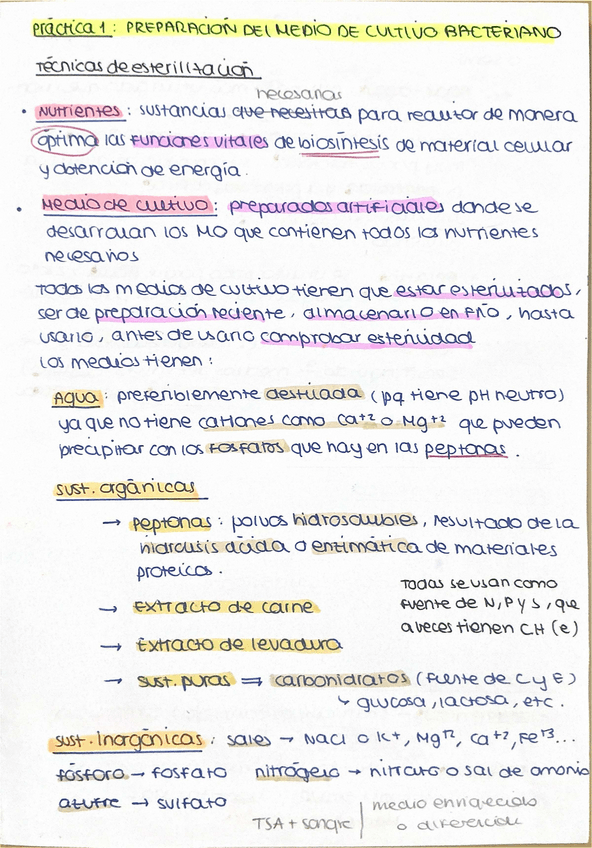 práctica 1: PREPARACIÓN DEL MEDIO DE CULTIVO BACTERIANO
Técnicas de esterilización
necesarias
• Nutrientes: sustancias que necesitas para realizar de manera
óptima las funciones vitales de biosíntesis de material celular
y obtención de energía.
• Medio de cultivo: preparados artificiales donde se
desarrollan los MO que contienen todos los nutrientes
necesarios
Todos los medios de cultivo tienen que estar esterilizados,
ser de preparación reciente, almacenarlo en frío, hasta
usarlo, antes de usarlo comprobar esterilidad
los medios tienen:
Agua: preferiblemente destilada (pq tiene pH neutro)
ya que no tiene cationes como Ca+2 o Mg+2 que pueden
precipitar con los fosfatos que hay en las peptonas.
sust. orgánicas
→ peptonas: polvos hidrosolubles, resultado de la
hidrólisis ácida o enzimática de materiales
proteicos.
Todas se usan como
fuente de N, P y S, que
a veces tienen CH (e)
→ Extracto de carne
→ Extracto de levadura
→ sust. puras ⇒ carbohidratos (fuente de C y E)
↳ glucosa, lactosa, etc.
sust. Inorgánicas: sales → NaCl o K+, Mg+2, Ca+2, Fe+3...
fósforo → fosfato nitrógeno → nitrato o sal de amonio
azufre → sulfato
TSA + sangre | medio enriquecido
o diferencial